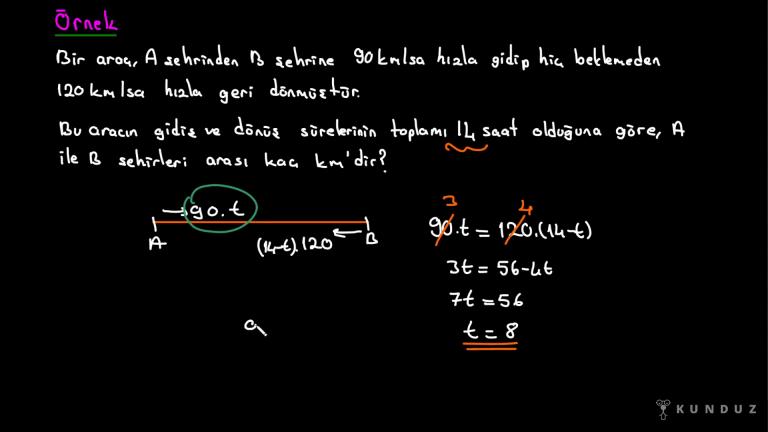 Örnek
Bir araç, A şehrinden B şehrine 90 km/sa hızla gidip hiç beklemeden
120 km/sa hızla geri dönmüştür.
Bu aracın gidiş ve dönüş sürelerinin toplamı 14 saat olduğuna göre, A
ile B şehirleri arası kaç km'dir?
90.t
A
(14-t).120
B
3
4
90.t = 120.(14-t)
3t = 56-4t
7t = 56
t = 8
KUNDUZ